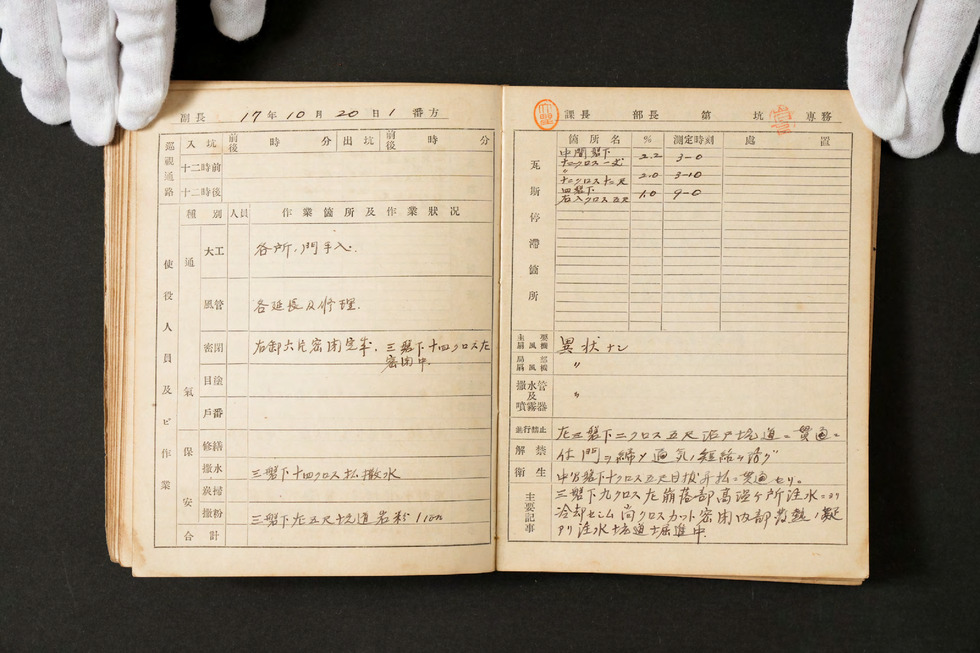 副長 17年10月20日1番方
巡視通路 入坑 前後 時 分 出坑 前後 時 分
十二時前
十二時後
使役人員及ビ作業
種別 人員 作業箇所及作業狀況
通氣
大工 各所ノ門手入.
風管 各延長及修理.
密閉 右卸六片密閉完成. 三盤下十四クロス左
密閉中.
目塗
戶番
保安
修繕
撒水 三盤下十四クロス払撒水
炭掃
撒粉 三盤下左五尺坑道岩粉
合計
課長 部長 第 坑 専務
瓦斯停滯箇所
箇所名 % 測定時刻 處置
2.2 3-0
十二クロス十二尺 2.0 3-10
四盤下
右入クロス五尺 1.0 9-0
主要扇風機 異状ナシ
局部扇風機 〃
撒水管及噴霧器 〃
進行禁止 左三盤下二クロス五尺沿戸坑道ニ貫通ニ
解禁 付門ヲ締メ通気ノ短絡ヲ防グ
衛生
主要記事
三盤下九クロス左崩落部高温ヶ所注水ニヨリ
冷却セシム尚クロスカット密閉内部蓄熱ノ疑
アリ注水坑道掘進中.